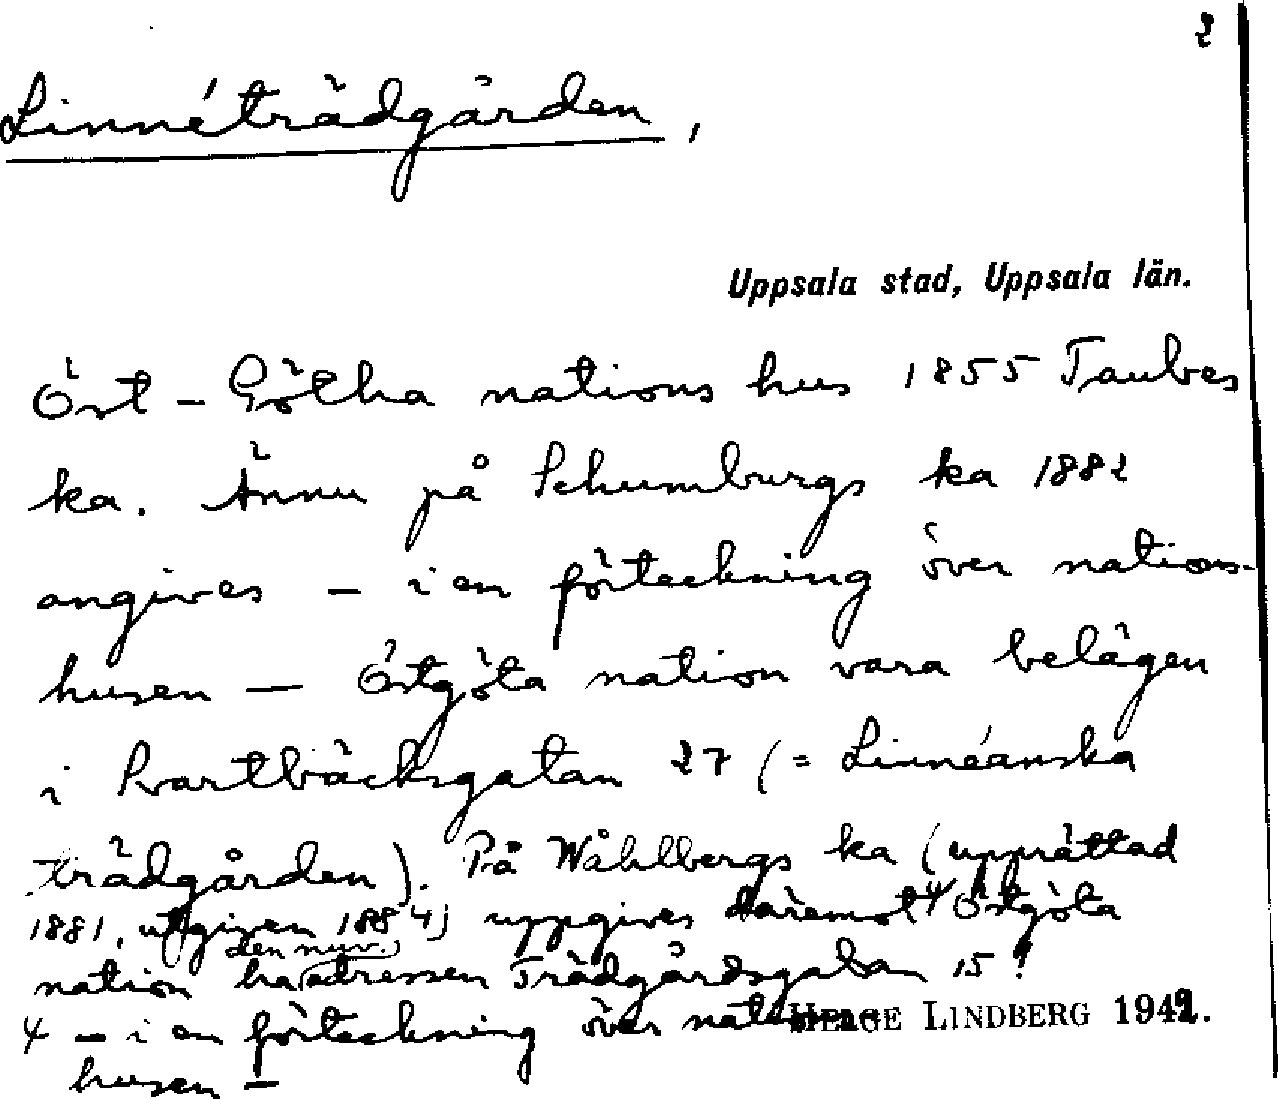 2
Linnéträdgården,
Uppsala stad, Uppsala län.
Öst-Götha nations hus 1855 Taubes
ka. Ännu på Schumburgs ka 1882
angives – i en förteckning över nations-
husen – Östgöta nation vara belägen
i Svartbäcksgatan 27 (= Linnéanska
trädgården). På Wåhlbergs ka (upprättad
1881, utgiven 1884) uppgives däremot 4 Östgöta
den nuv.
nation ha adressen Trädgårdsgatan 15!
4 – i en förteckning över nations-
HELGE LINDBERG 1942.
husen –